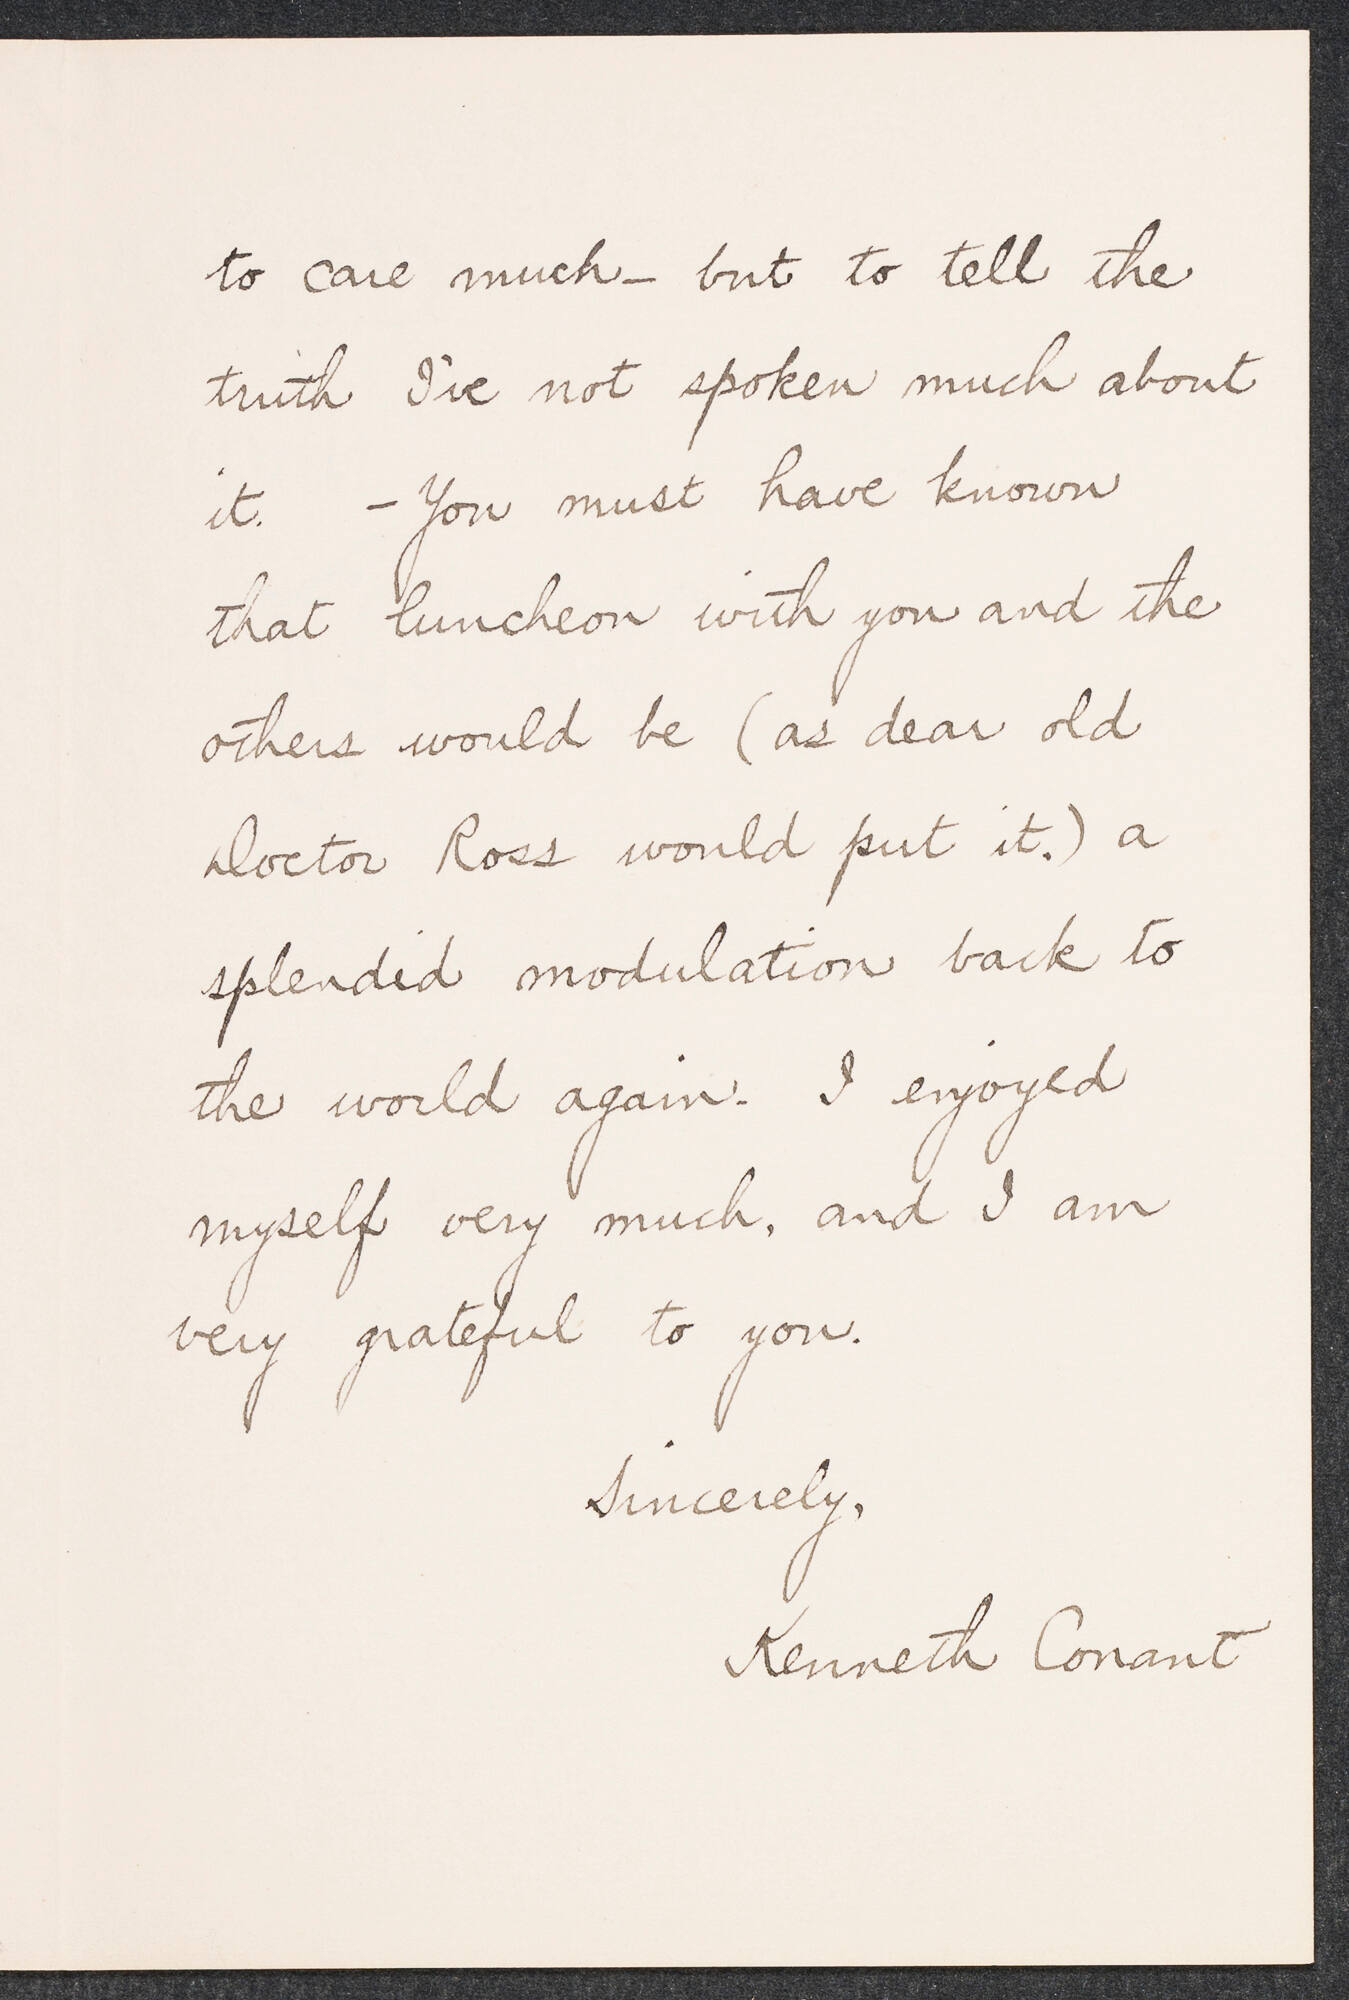 to care much – but to tell the
truth I've not spoken much about
it. – You must have known
that luncheon with you and the
others would be (as dear old
Doctor Ross would put it.) a
splendid modulation back to
the world again. I enjoyed
myself very much, and I am
very grateful to you.
Sincerely,
Kenneth Conant